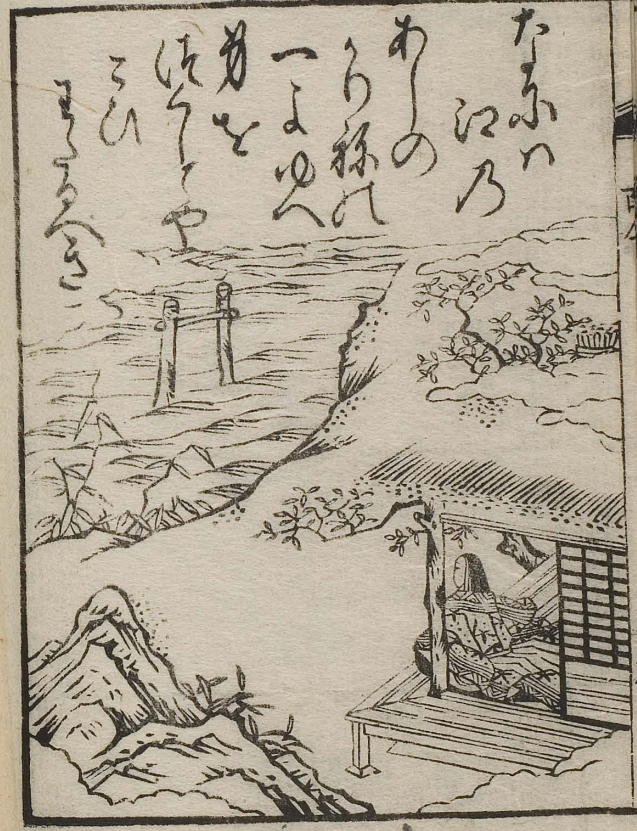 なにハ
江乃
あしの
かりねの
一よゆへ
身を
つくしてや
こひ
わたるへき